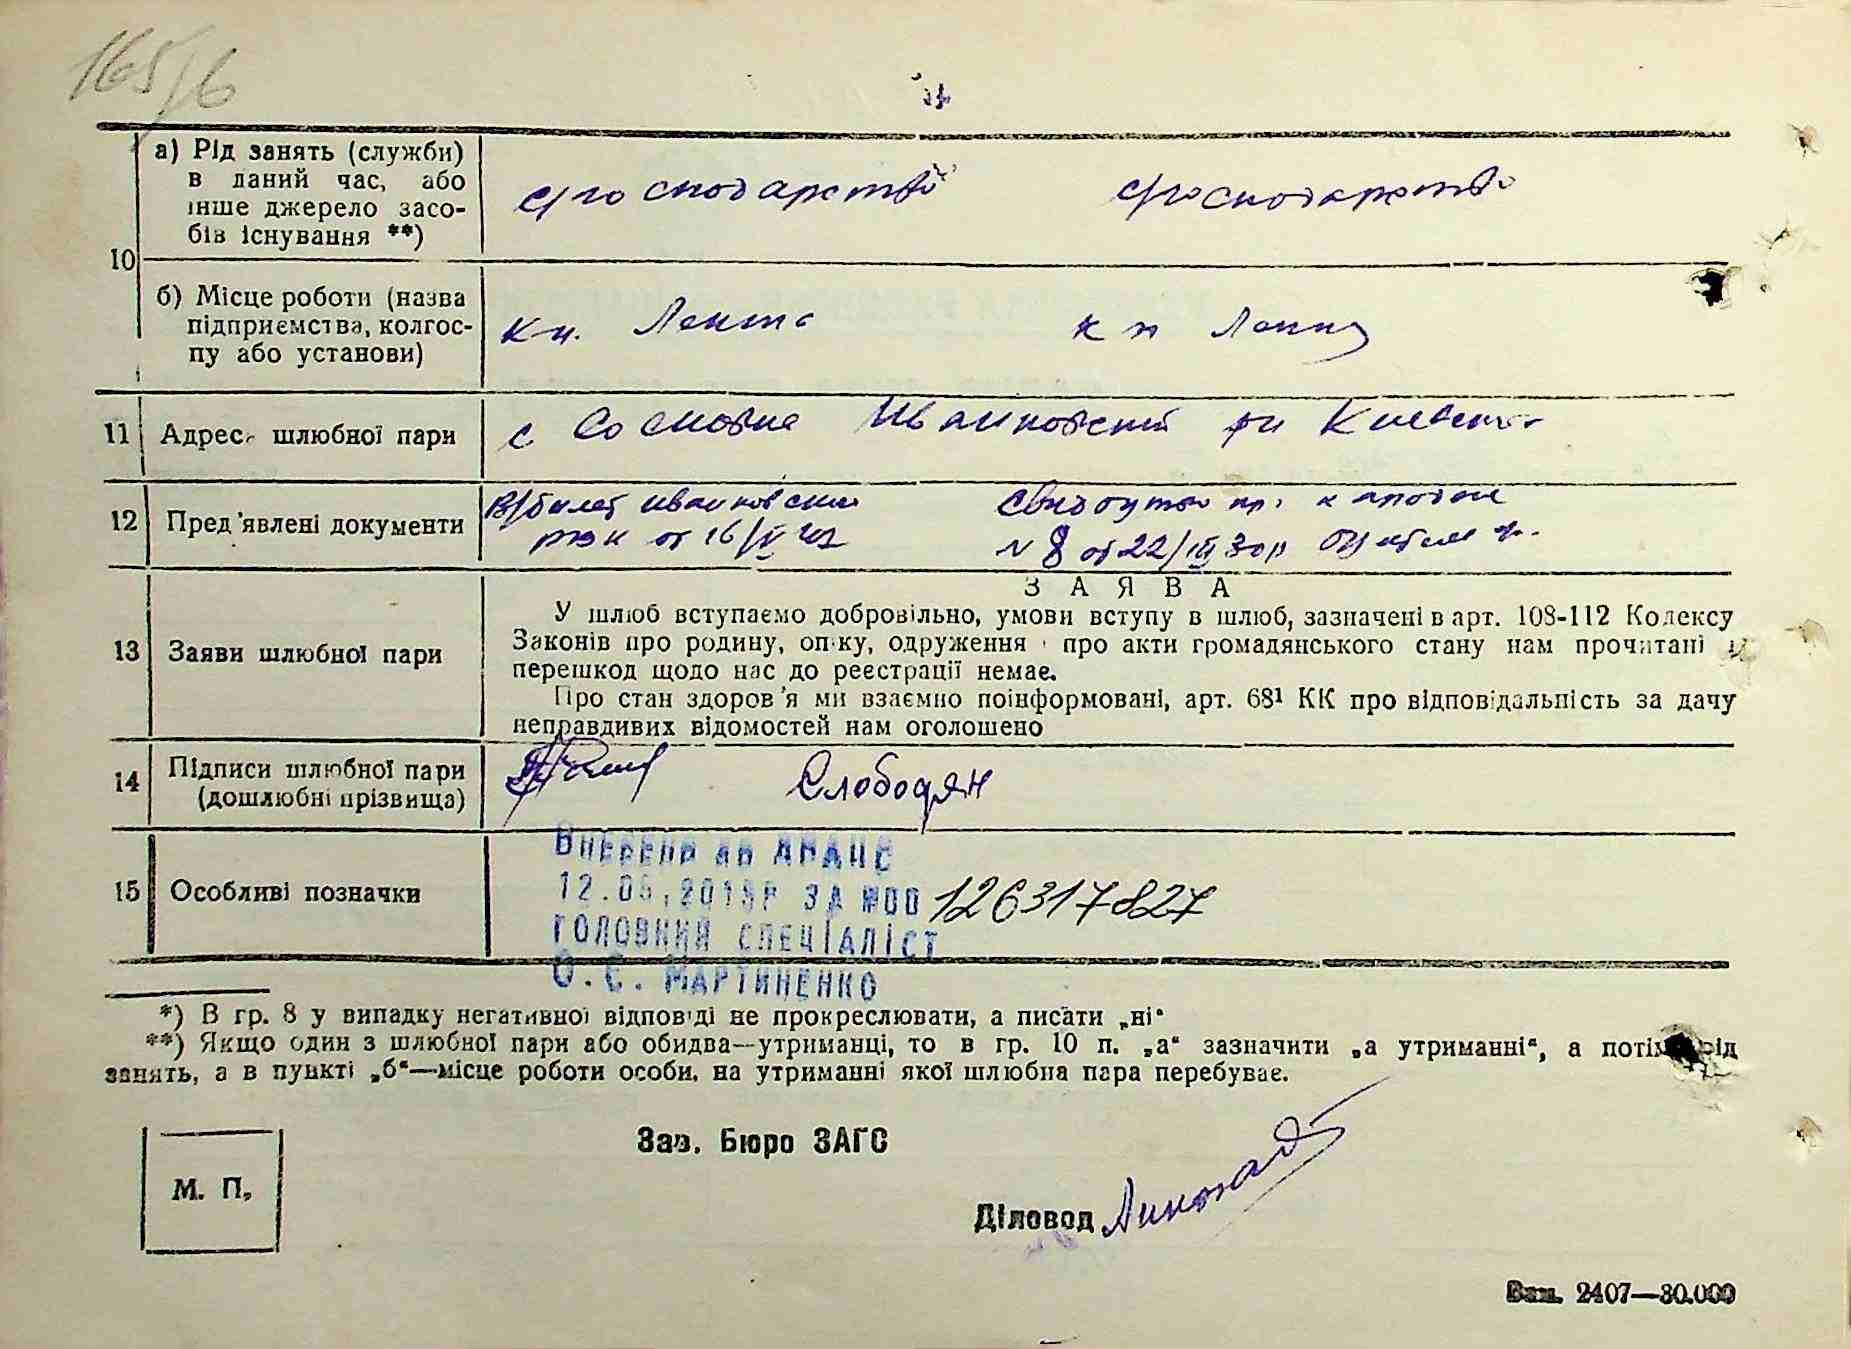 165/6
10
а) Рід занять (служби)
в даний час, або
інше джерело засо-
бів існування **)
с/господарство с/господарство
б) Місце роботи (назва
підприємства, колгос-
пу або установи)
11 Адрес шлюбної пари
с
12 Пред'явлені документи
В/билет Иванковским
от 16/
N 8 от 22/III 30 р
З А Я В А
13 Заяви шлюбної пари
У шлюб вступаємо добровільно, умови вступу в шлюб, зазначені в арт. 108-112 Кодексу
Законів про родину, опіку, одруження і про акти громадянського стану нам прочитані і
перешкод щодо нас до реєстрації немає.
Про стан здоров'я ми взаємно поінформовані, арт. 68¹ КК про відповідальність за дачу
неправдивих відомостей нам оголошено
14 Підписи шлюбної пари
(дошлюбні прізвища)
Слободян
15 Особливі позначки
12.06.2019Р ЗА №00 126317827
ГОЛОВНИЙ СПЕЦІАЛІСТ
О.Є. МАРТИНЕНКО
*) В гр. 8 у випадку негативної відповіді не прокреслювати, а писати „ні“
**) Якщо один з шлюбної пари або обидва—утриманці, то в гр. 10 п. „а“ зазначити „а утриманні“, а потім рід
занять, а в пункті „б“—місце роботи особи, на утриманні якої шлюбна пара перебуває.
Зав. Бюро ЗАГС
М. П.
Діловод
Зам. 2407—30.000